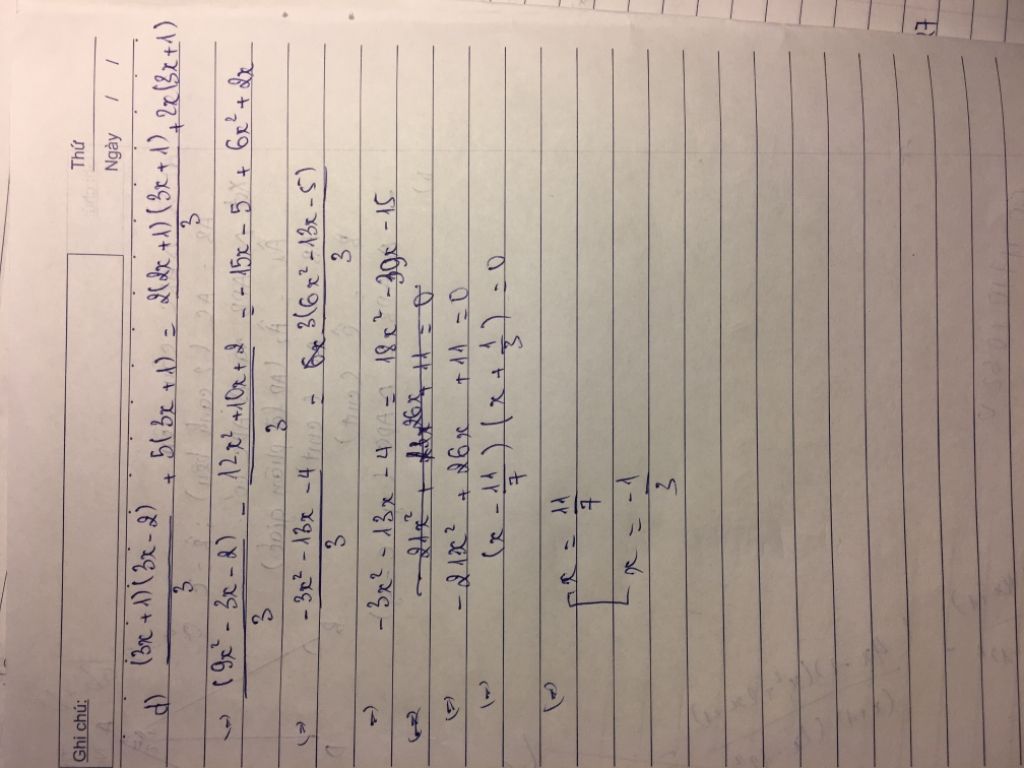 Ghi chú:
Thứ
Ngày / /
d) (3x+1)(3x-2)/3 + 5(3x+1) = 2(2x+1)(3x+1)/3 + 2x(3x+1)
(=) (9x² - 3x - 2)/3 - (12x² + 10x + 2)/3 = -15x - 5 + 6x² + 2x
(=) (-3x² - 13x - 4)/3 = 3(6x² - 13x - 5)/3
(=) -3x² - 13x - 4 = 18x² - 39x - 15
(=) -21x² + 26x + 11 = 0
(=) -21x² + 26x + 11 = 0
(=) (x - 11/7)(x + 1/3) = 0
(=) [x = 11/7
[x = -1/3
27